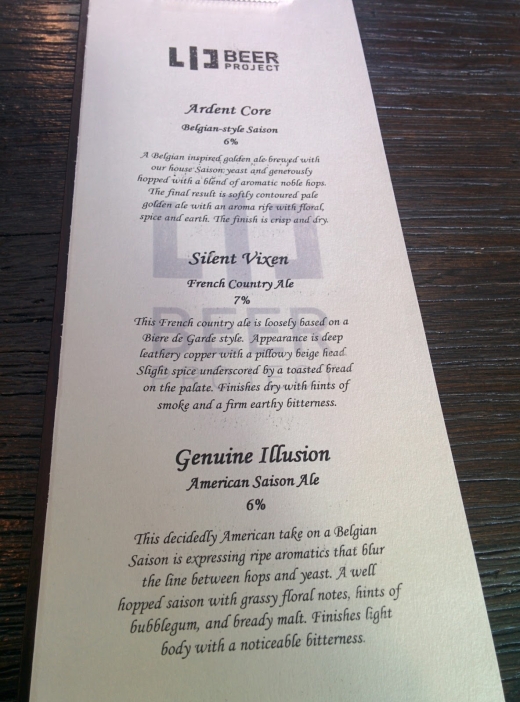 LIC BEER
PROJECT
Ardent Core
Belgian-style Saison
6%
A Belgian inspired golden ale brewed with
our house Saison yeast and generously
hopped with a blend of aromatic noble hops.
The final result is softly contoured pale
golden ale with an aroma rife with floral,
spice and earth. The finish is crisp and dry.
Silent Vixen
French Country Ale
7%
This French country ale is loosely based on a
Biere de Garde style. Appearance is deep
leathery copper with a pillowy beige head.
Slight spice underscored by a toasted bread
on the palate. Finishes dry with hints of
smoke and a firm earthy bitterness.
Genuine Illusion
American Saison Ale
6%
This decidedly American take on a Belgian
Saison is expressing ripe aromatics that blur
the line between hops and yeast. A well
hopped saison with grassy floral notes, hints of
bubblegum, and bready malt. Finishes light
body with a noticeable bitterness.